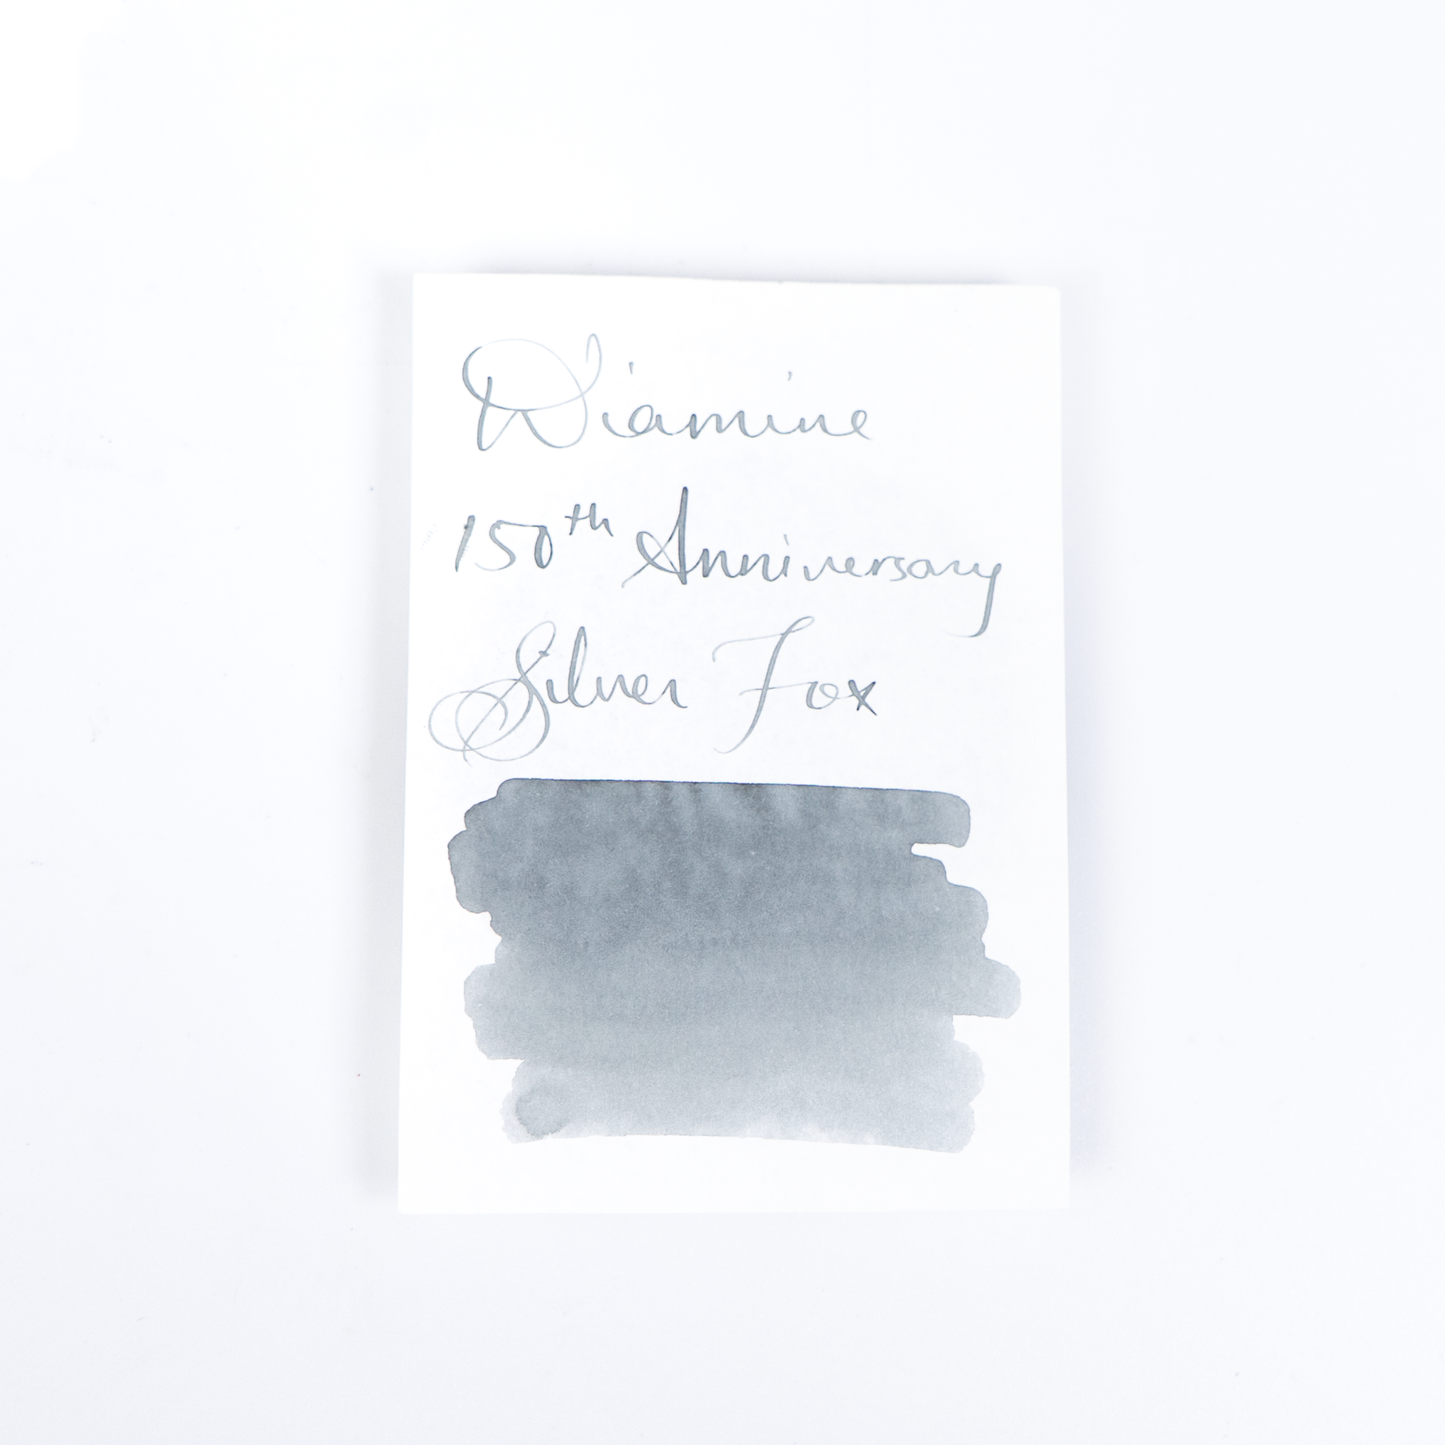 Diamine
150th Anniversary
Silver Fox